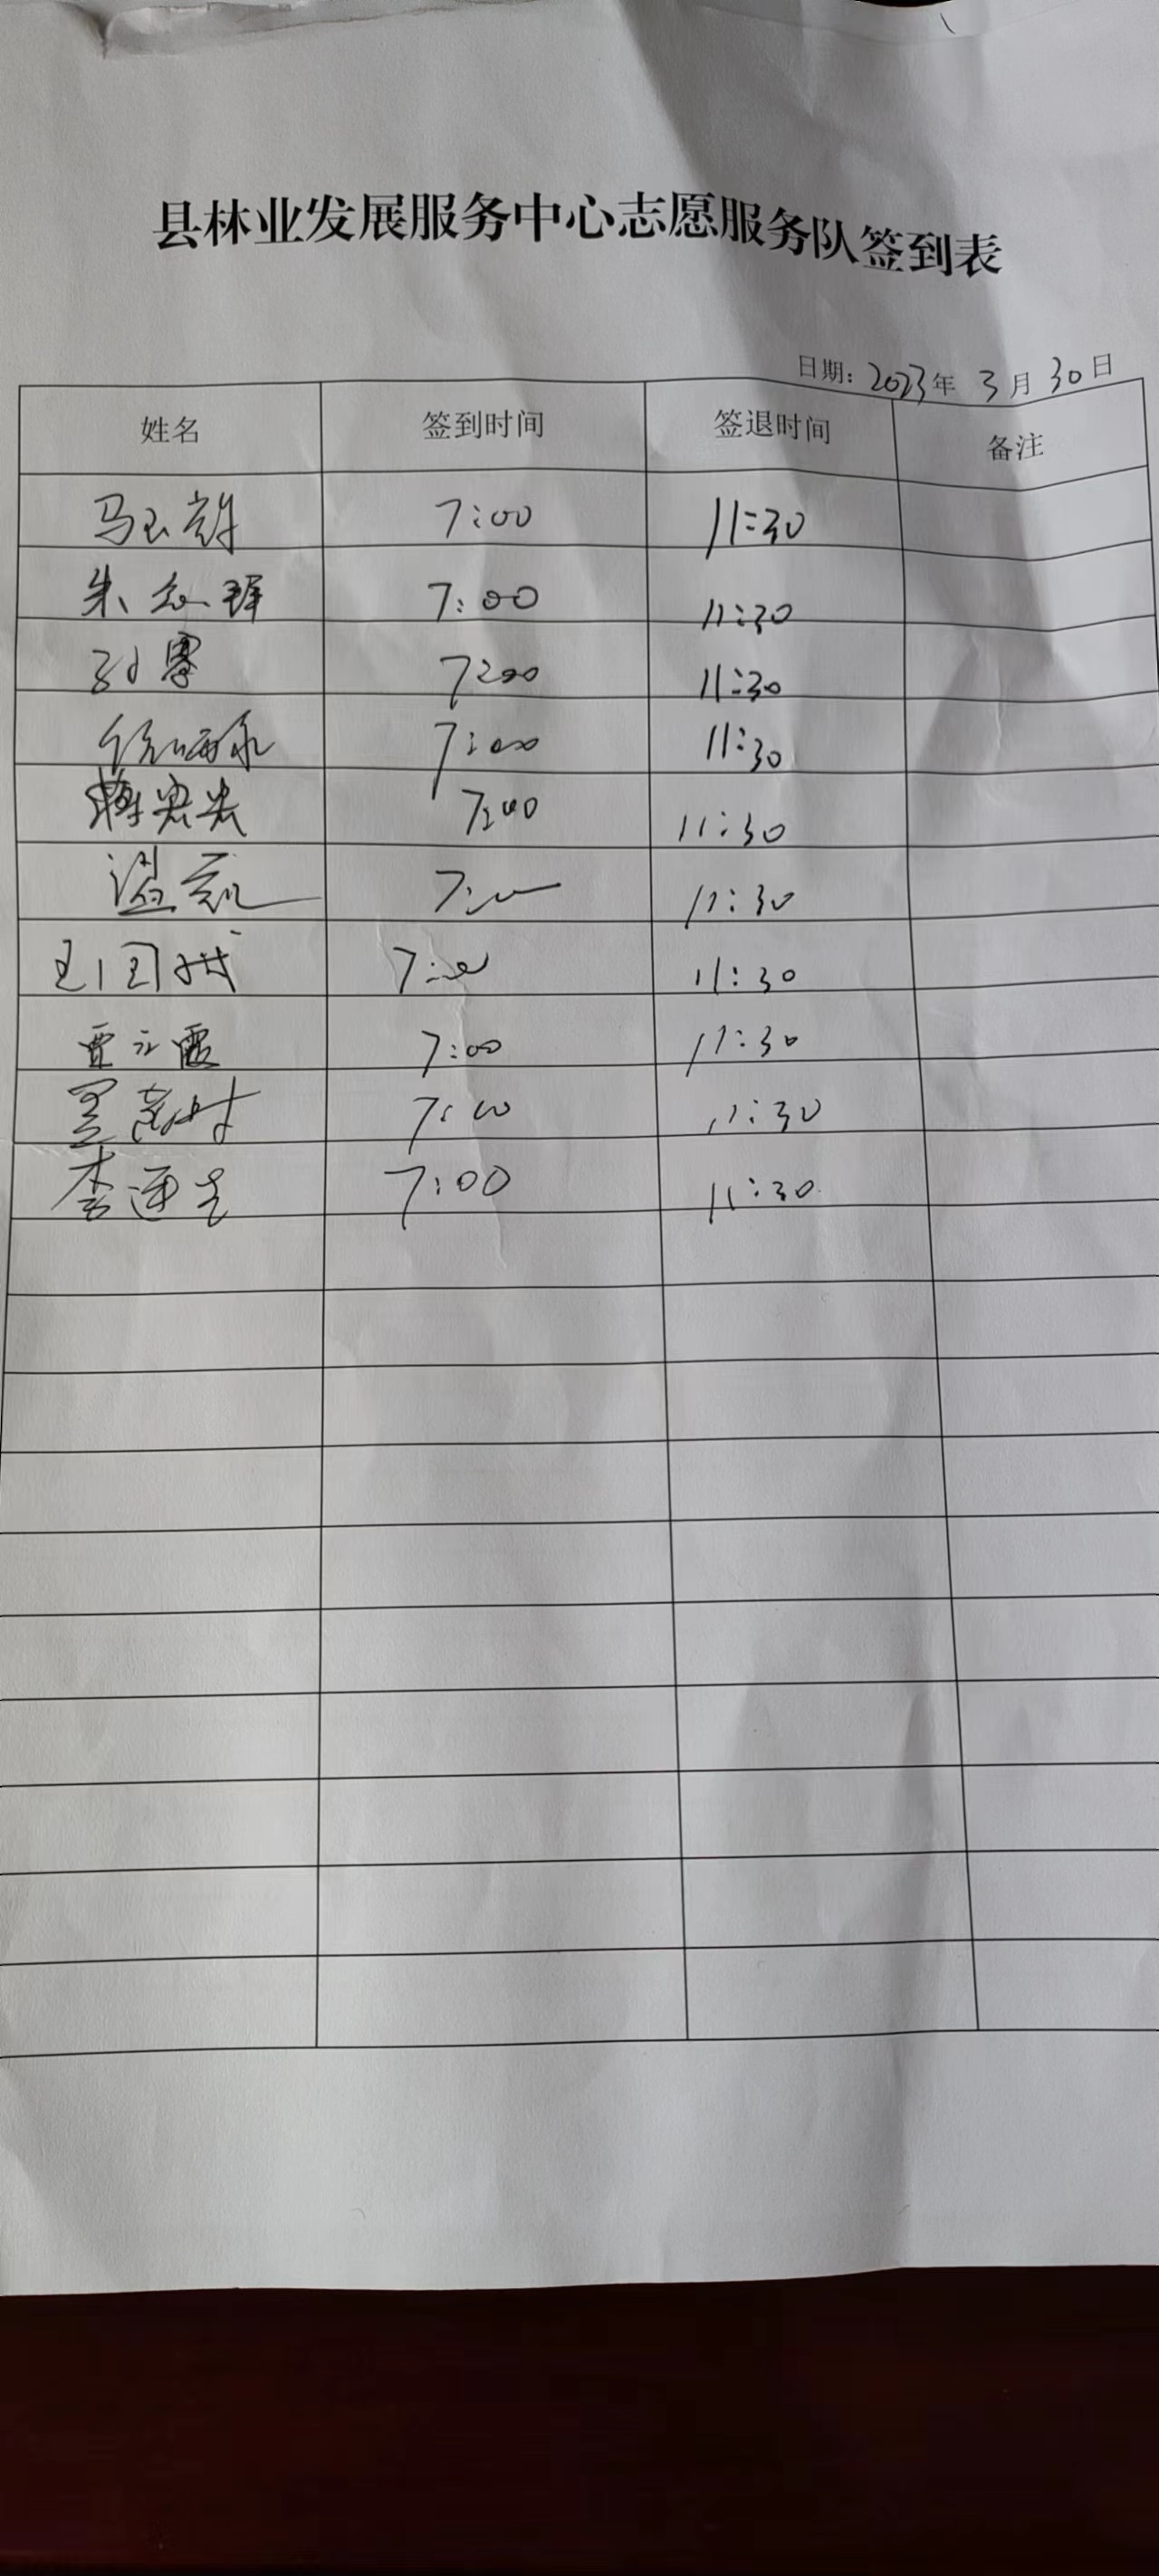 县林业发展服务中心志愿服务队签到表
日期：2023年 3月 30日
姓名 签到时间 签退时间 备注
马玉 7:00 11:30
朱 7:00 11:30
7:00 11:30
7:00 11:30
蒋宏宏 7:00 11:30
温 7:00 11:30
7:00 11:30
贾永霞 7:00 11:30
7:00 11:30
李 7:00 11:30